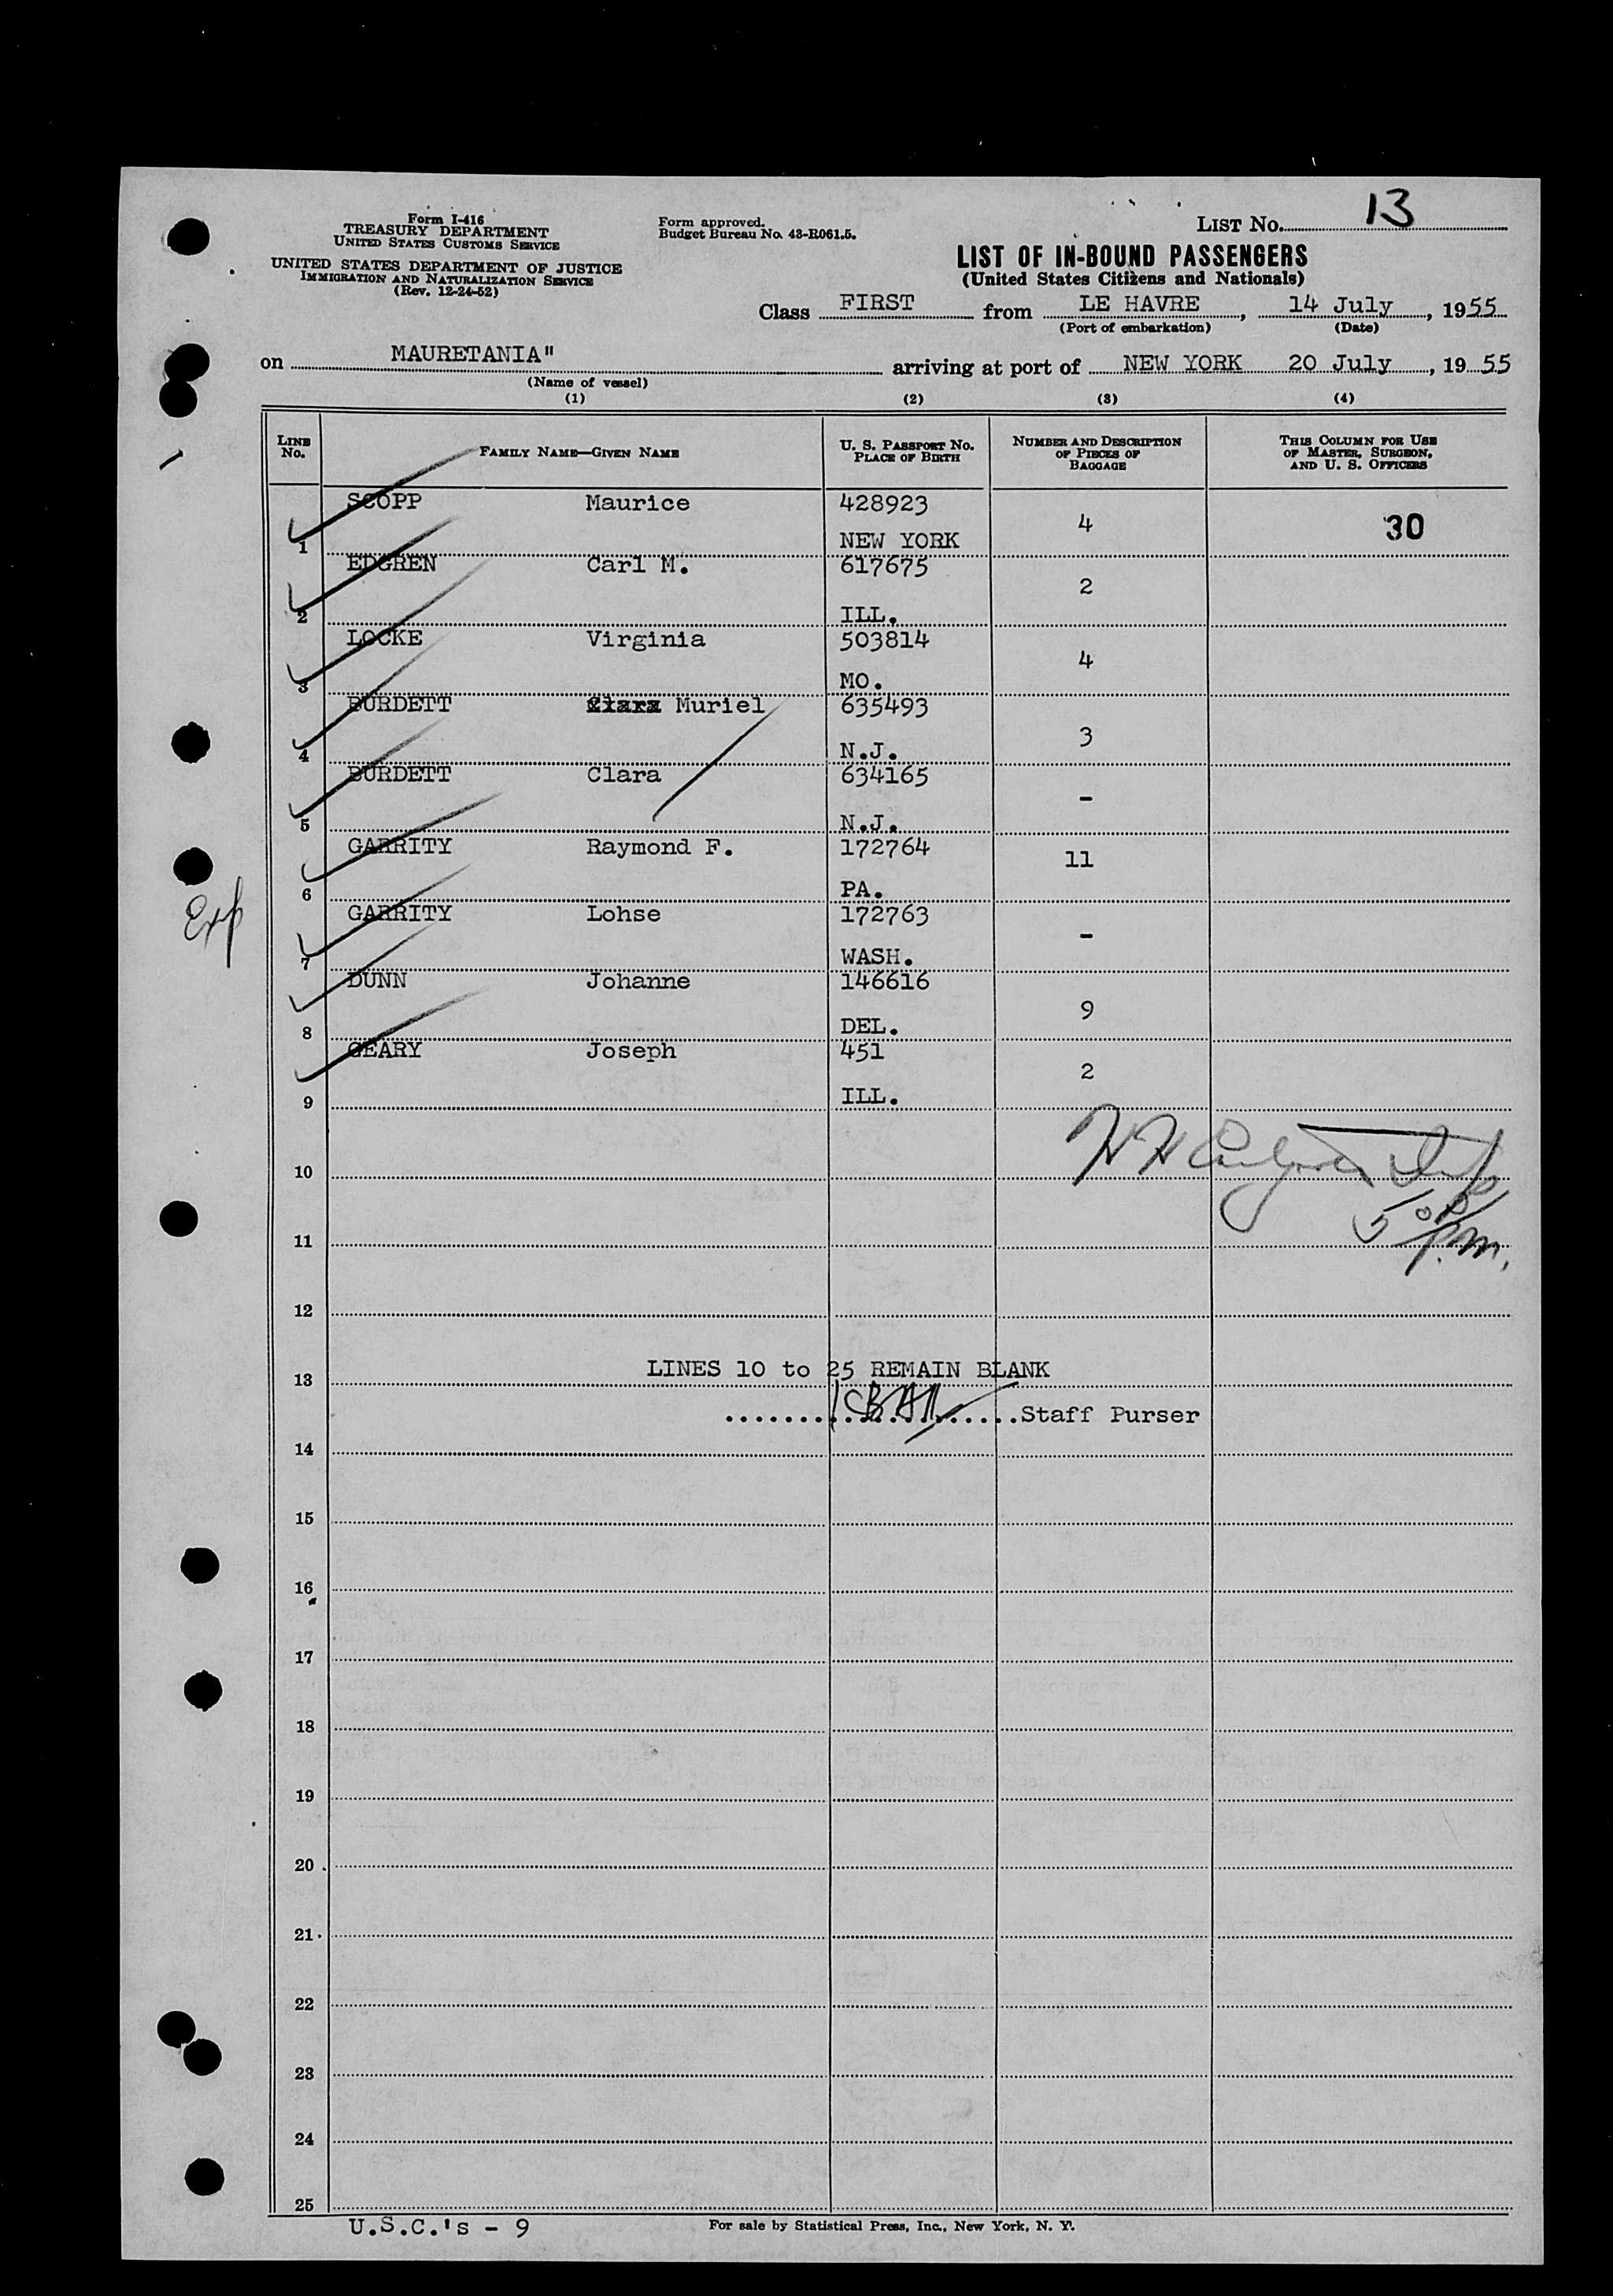 Form I-416
TREASURY DEPARTMENT
UNITED STATES CUSTOMS SERVICE
UNITED STATES DEPARTMENT OF JUSTICE
IMMIGRATION AND NATURALIZATION SERVICE
(Rev. 12-24-52)
Form approved.
Budget Bureau No. 43-R061.5.
LIST No. 13
LIST OF IN-BOUND PASSENGERS
(United States Citizens and Nationals)
Class FIRST from LE HAVRE, 14 July, 1955
(Port of embarkation) (Date)
on MAURETANIA" arriving at port of NEW YORK 20 July, 1955
(Name of vessel)
(1) (2) (3) (4)
LINE No. FAMILY NAME—GIVEN NAME U. S. PASSPORT No. PLACE OF BIRTH NUMBER AND DESCRIPTION OF PIECES OF BAGGAGE THIS COLUMN FOR USE OF MASTER, SURGEON, AND U. S. OFFICERS
1 SCOPP Maurice 428923 NEW YORK 4 30
2 EDGREN Carl M. 617675 ILL. 2
3 LOCKE Virginia 503814 MO. 4
4 BURDETT Clara Muriel 635493 N.J. 3
5 BURDETT Clara 634165 N.J. -
6 GARRITY Raymond F. 172764 PA. 11
Exp
7 GARRITY Lohse 172763 WASH. -
8 DUNN Johanne 146616 DEL. 9
9 GEARY Joseph 451 ILL. 2
10
11 p.m.
12
13 LINES 10 to 25 REMAIN BLANK
Staff Purser
14
15
16
17
18
19
20
21
22
23
24
25
U.S.C.'s - 9
For sale by Statistical Press, Inc., New York, N. Y.